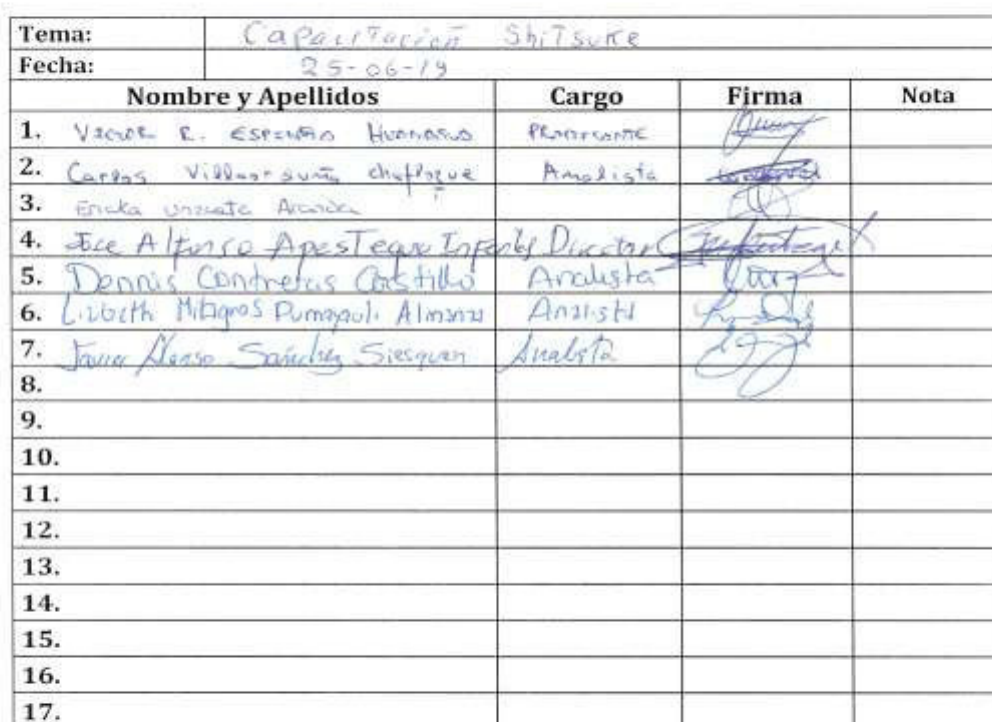 Tema: Capacitación Shitsuke
Fecha: 25-06-19
Nombre y Apellidos Cargo Firma Nota
1. Victor R. Huamasus Practicante
2. Carlos Analista
3. Ericka
4. Jose Alfonso Apestegui Infantes Director
5. Dennis Contreras Castillo Analista
6. Lizbeth Milagros Pumapauli Almanza Analista
7. Javier Alonso Sanchez Siesquen Analista
8.
9.
10.
11.
12.
13.
14.
15.
16.
17.